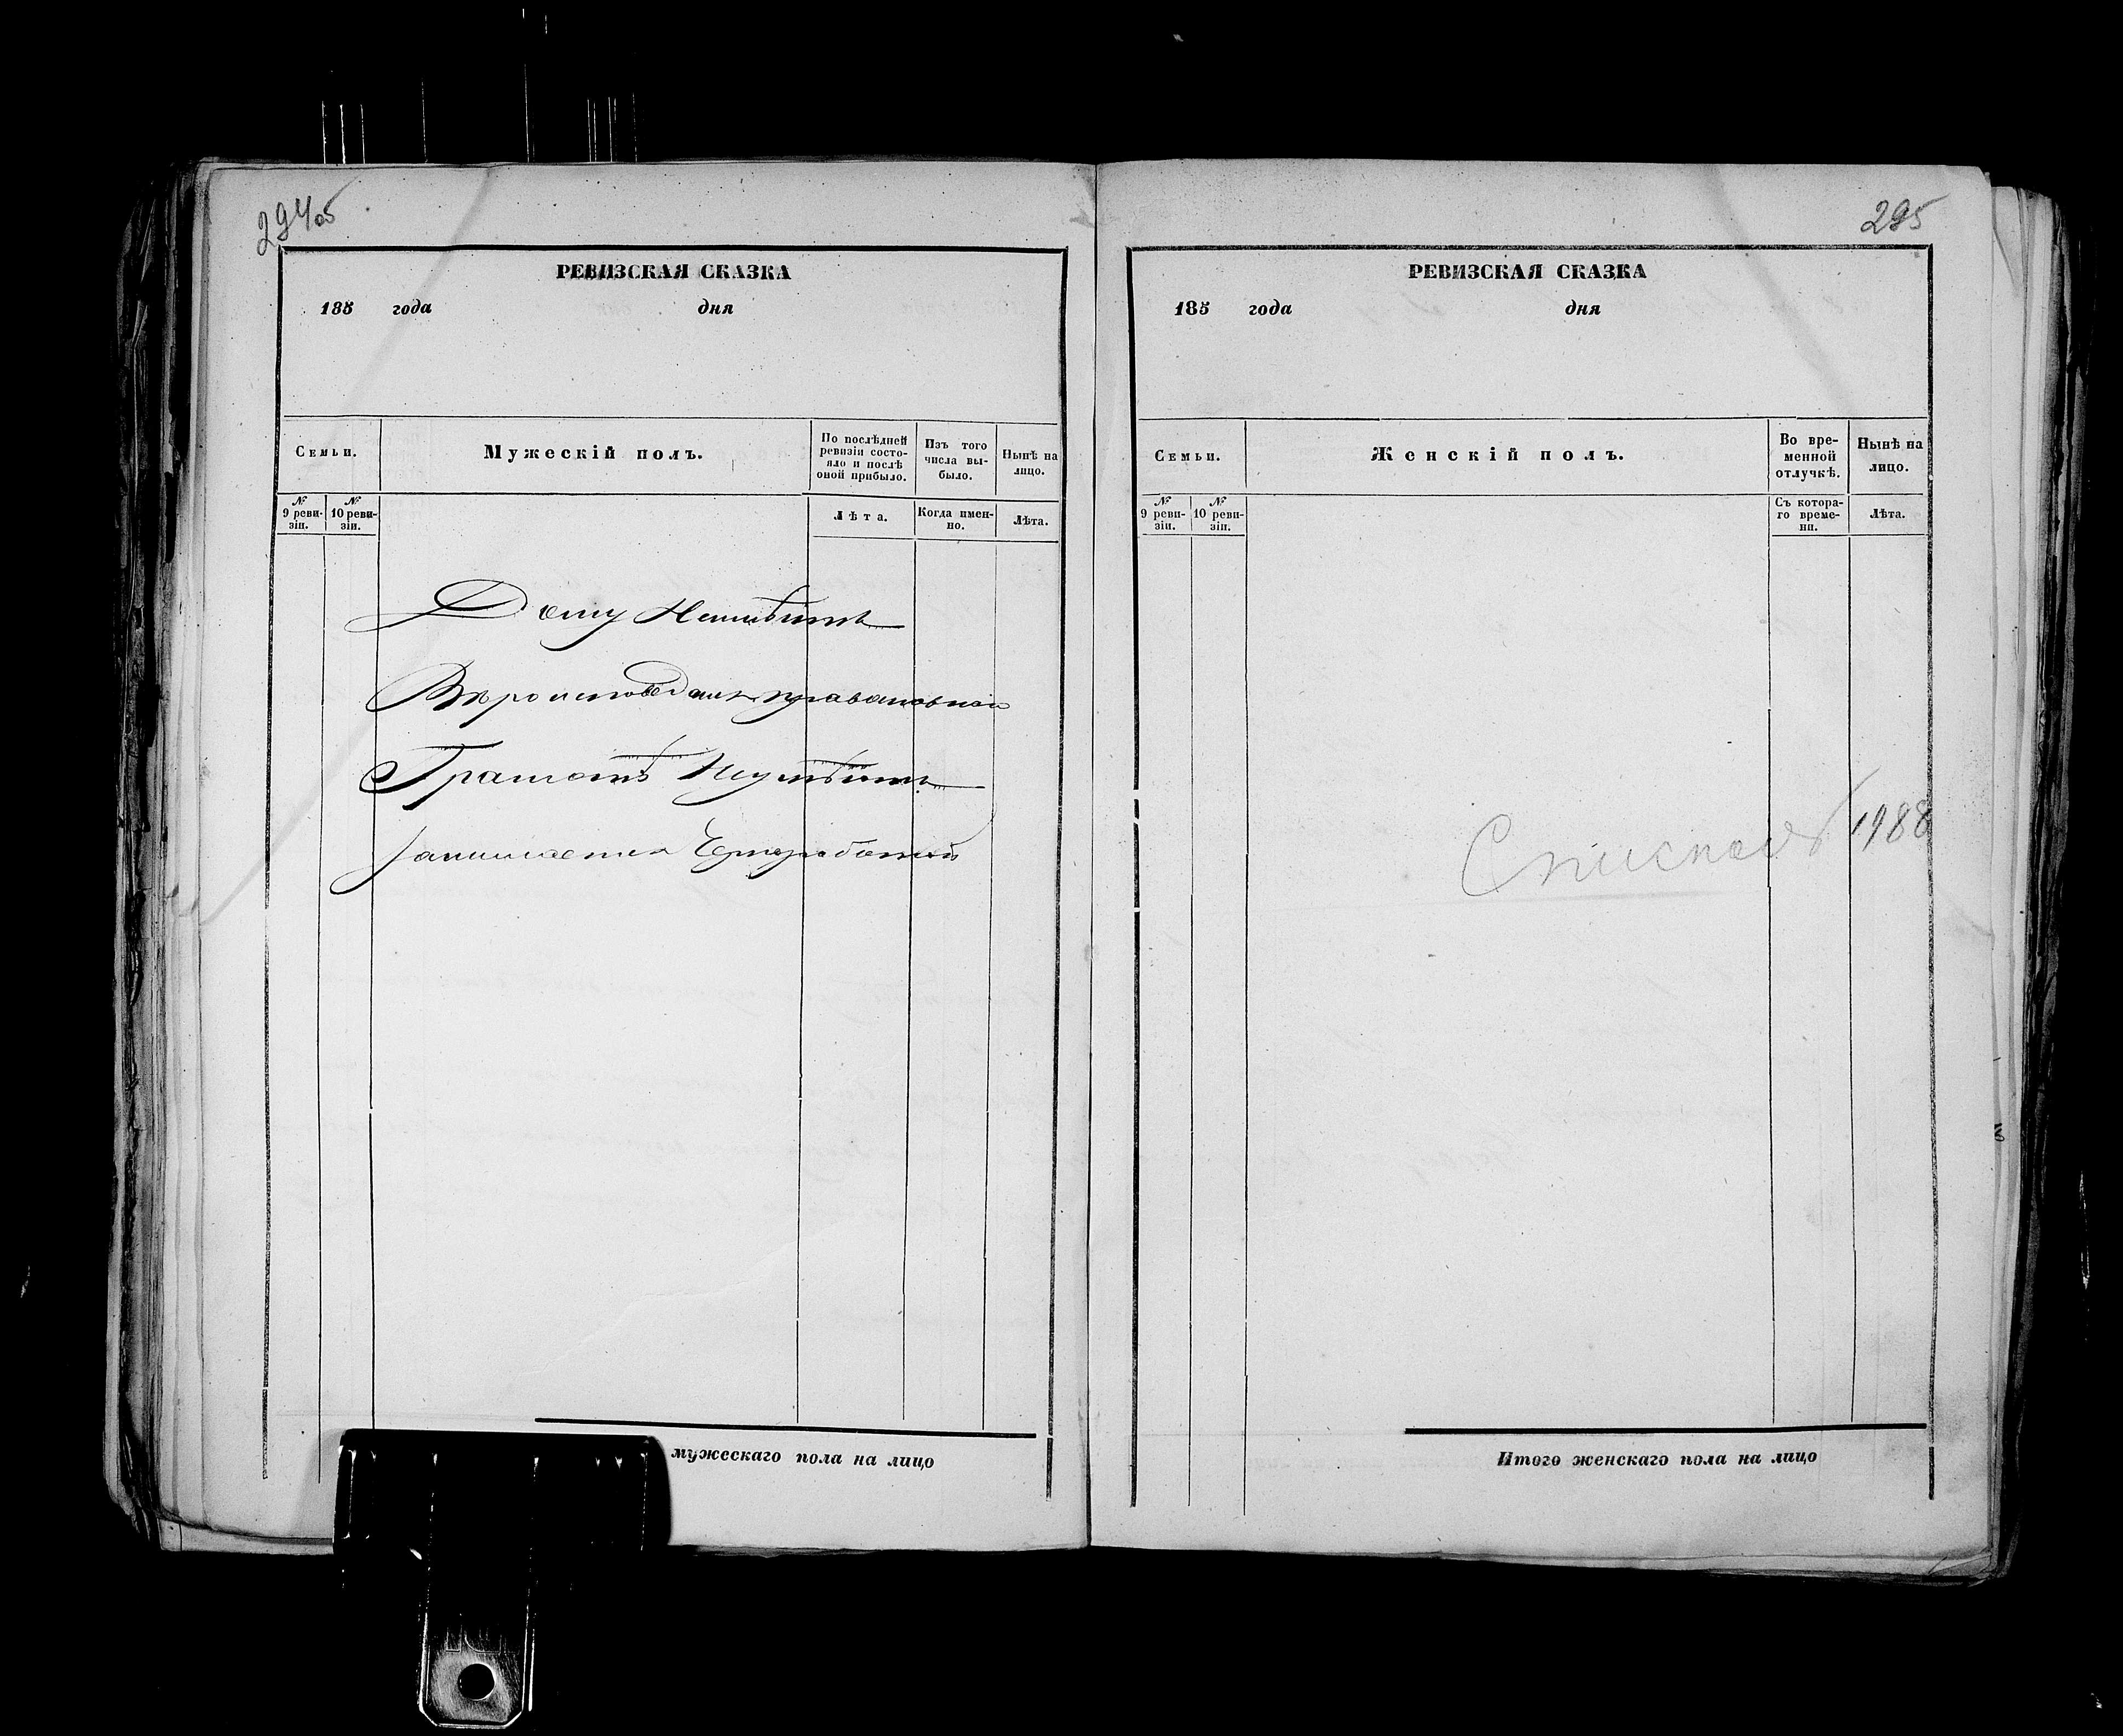 294об
РЕВИЗСКАЯ СКАЗКА
185 года дня
Семьи.
Мужескій полъ.
По послѣдней ревизіи состояло и послѣ оной прибыло.
Изъ того числа выбыло.
Нынѣ на лицо.
№ 9 ревизіи.
№ 10 ревизіи.
Лѣта.
Когда именно.
Лѣта.
Дому Неимѣитъ
Вѣроисповеданія православнаго
Грамотѣ Неумѣитъ
занимается
мужескаго пола на лицо
295
РЕВИЗСКАЯ СКАЗКА
185 года дня
Семьи.
Женскій полъ.
Во временной отлучкѣ.
Нынѣ на лицо.
№ 9 ревизіи.
№ 10 ревизіи.
Съ котораго времени.
Лѣта.
1988
Итого женскаго пола на лицо